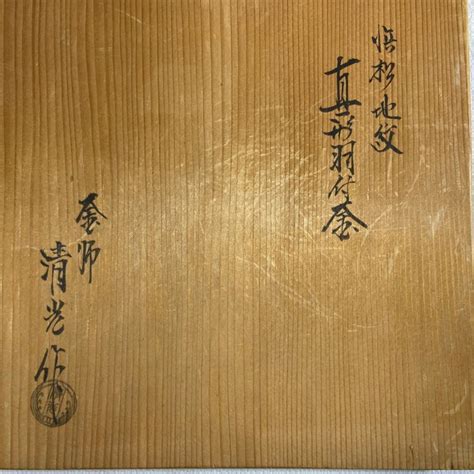 浜松地紋
真形羽付釜
釜師
清光作